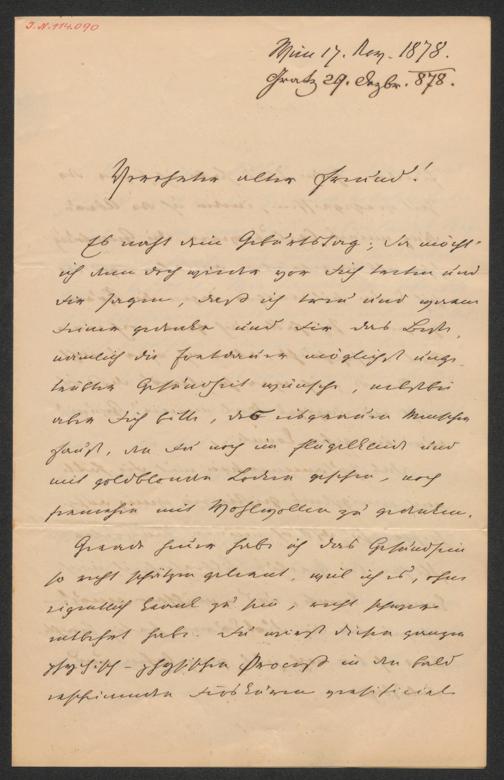 I.N. 114.090
Wien 17. Nov. 1878.
Gratz 29. Dezbr. 878.
Verehrter alter Freund!
Es naht dein Geburtstag; da möcht'
ich denn doch wieder vor dich treten und
dir sagen, daß ich treu und warm
deiner gedenke und dir das Beste,
nämlich die Fortdauer möglichst unge-
trübter Gesundheit wünsche, nebstbei
aber dich bitte, des eisgrauen Menschen
, den du noch im Flügelkleide und
mit goldblonden Locken gesehen, noch
fernerhin mit Wohlwollen zu gedenken.
Gerade heuer habe ich das Gesundsein
so recht schätzen gelernt, weil ich es, ohne
eigentlich krank zu sein, recht schwer
entbehrt habe. Du wirst diesen ganzen
psychisch-physischen Process in den bald
erscheinenden